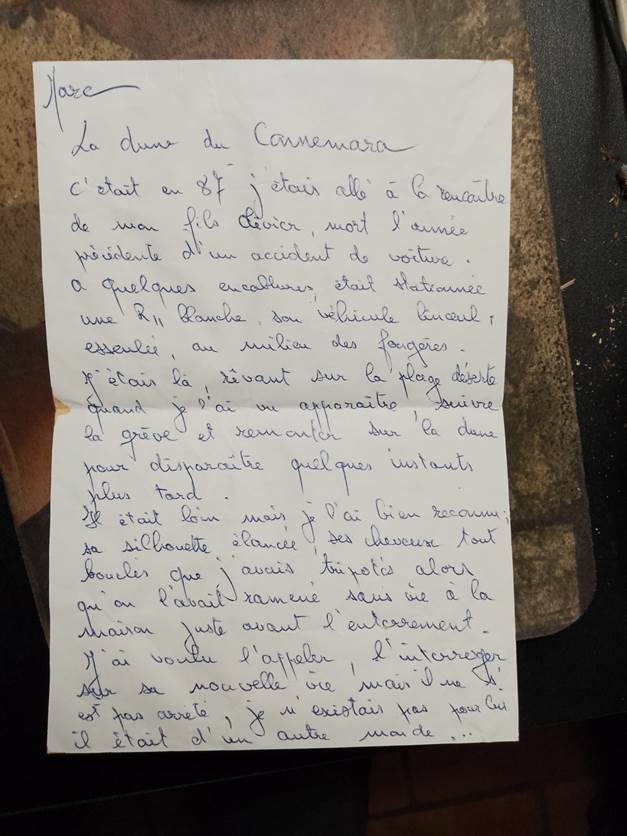 Marc
La dune du Connemara
c'était en 87 j'étais allé à la rencontre
de mon fils Olivier, mort l'année
précédente d'un accident de voiture.
a quelques encablures, était stationnée
une R11 blanche, son véhicule linceul,
esseulée, au milieu des fougères.
J'étais là, rêvant sur la plage déserte
quand je l'ai vu apparaître, suivre
la grève et remonter sur la dune
pour disparaître quelques instants
plus tard.
Il était loin mais je l'ai bien reconnu ;
sa silhouette élancée, ses cheveux tout
bouclés que j'avais tripotés alors
qu'on l'avait ramené sans vie à la
maison juste avant l'enterrement.
J'ai voulu l'appeler, l'interroger
sur sa nouvelle vie mais il ne s'
est pas arrêté, je n'existais pas pour lui
il était d'un autre monde...